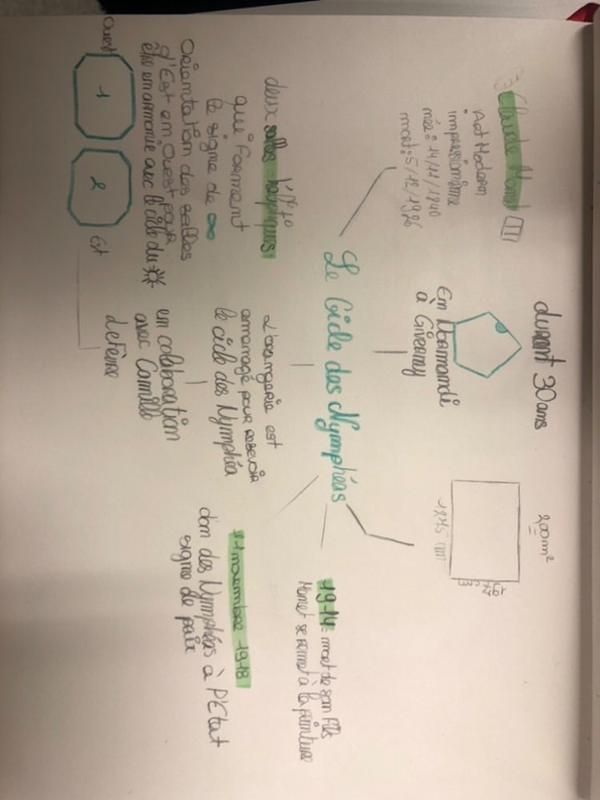 Claude Monet
Art Modern
impressionnisme
née: 14/11/1840
mort: 5/12/1926
durant 30ans
En Normandi
à Giverny
200m²
Le Cicle des Nymphéas
deux salles
qui forment
le signe de ∞
Orientation des salles
d'Est en ouest pour
être en armonie avec le cicle du
Ouest
1
2
Est
L'orangerie est
amenagé pour resevoir
le cicle des Nymphéa
en colaboration
avec Camille
defène
1914: mort de son fils
Monet se remet à la peinture
11 novembre 1918
don des Nymphéas à l'Etat
signe de paix